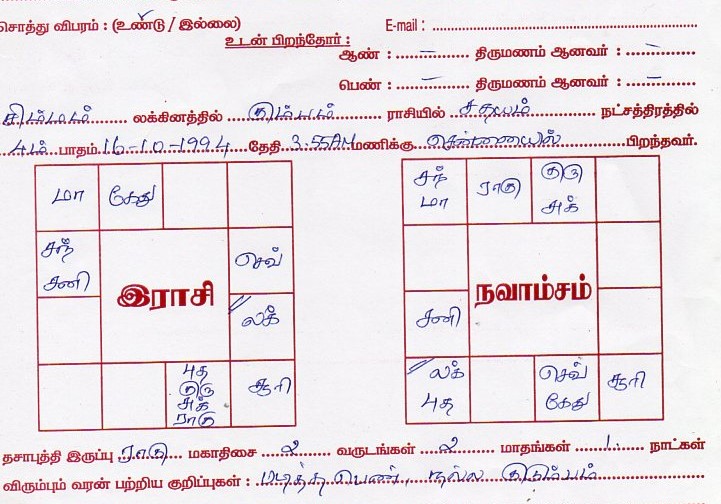 சொத்து விபரம் : (உண்டு / இல்லை) E-mail :
உடன் பிறந்தோர் :
ஆண் : – திருமணம் ஆனவர் : –
பெண் : – திருமணம் ஆனவர் : –
சிம்மம் லக்கினத்தில் கும்பம் ராசியில் சதயம் நட்சத்திரத்தில்
4ம் பாதம் 16-10-1994 தேதி 3.55AM மணிக்கு சென்னையில் பிறந்தவர்.
மா கேது
சந் சனி
செவ்
லக்
புத குரு சுக் ராகு
சூரி
இராசி
சந் மா
ராகு
குரு சுக்
சனி
லக் புத
செவ் கேது
சூரி
நவாம்சம்
தசாபுத்தி இருப்பு ராகு மகாதிசை 2 வருடங்கள் 2 மாதங்கள் 1 நாட்கள்
விரும்பும் வரன் பற்றிய குறிப்புகள் : படித்த பெண், நல்ல குடும்பம்